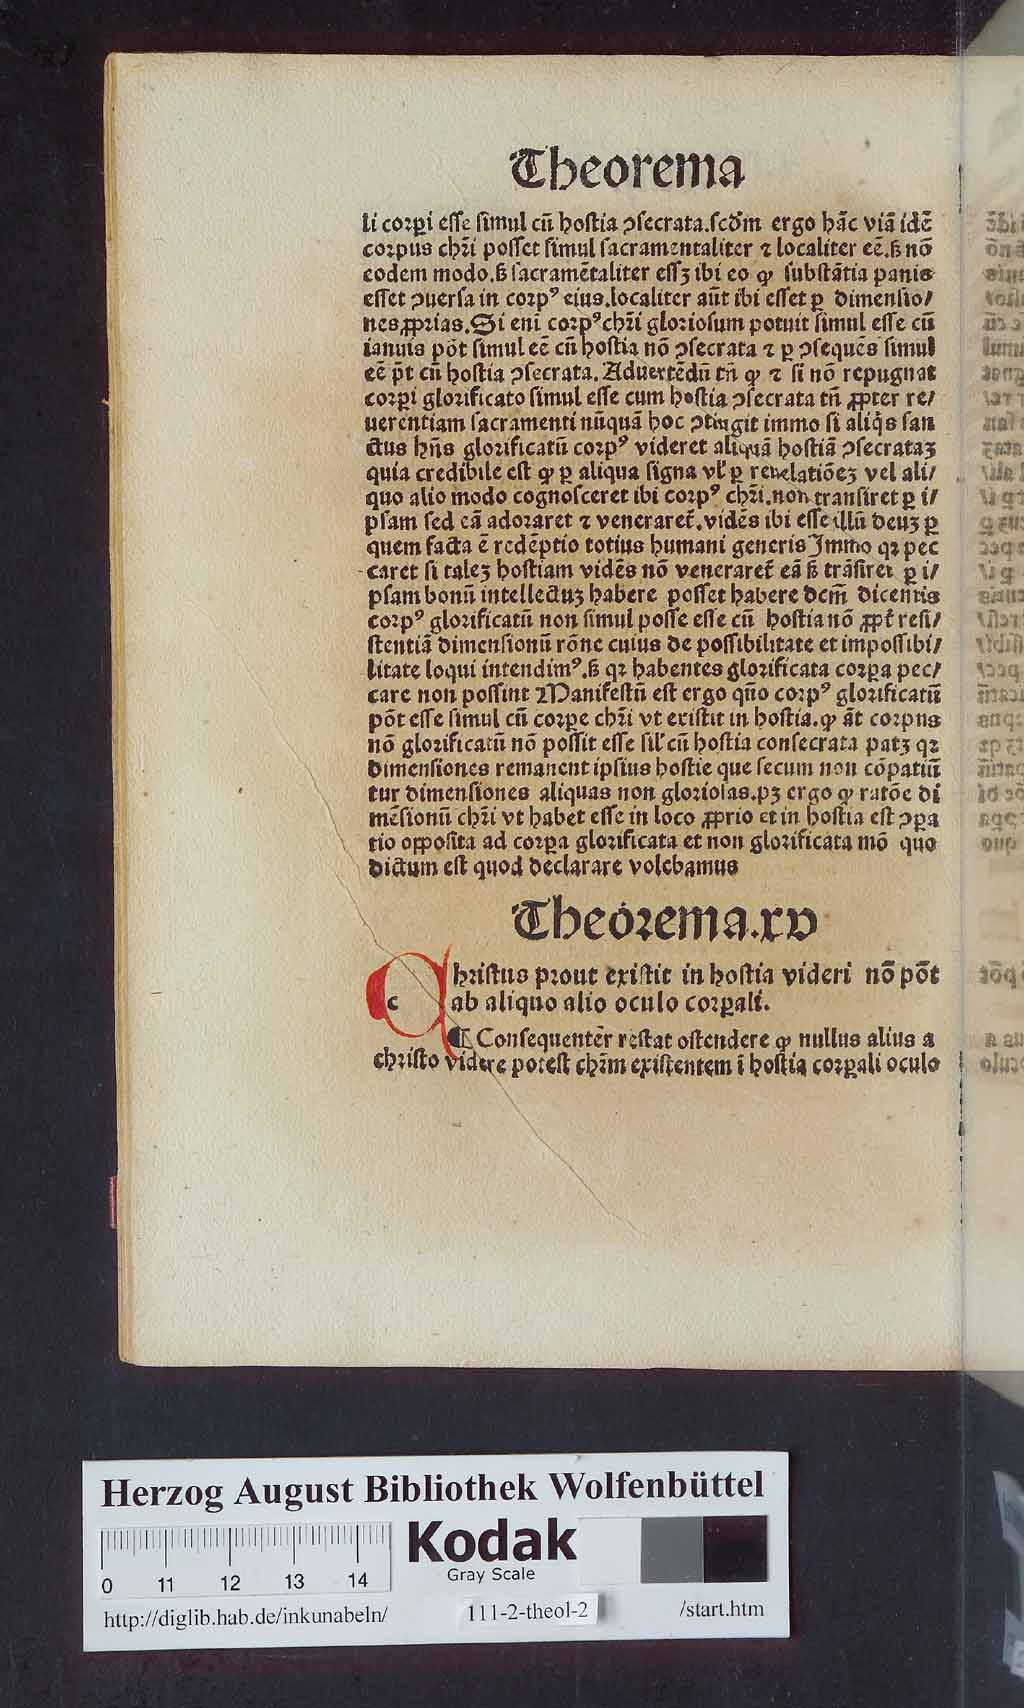 Theorema
li corꝑi eſſe ſimul cū hoſtia ↄſecrata.ſcd̓m ergo hāc viā idē
corpus chr̄i poſſet ſimul ſacramentaliter ⁊ localiter eē.ẞ nō
eodem modo.ẞ ſacramētaliter eſſꝫ ibi eo ꝙ ſubſtātia panis
eſſet ↄuerſa in corpꝰ eius.localiter aūt ibi eſſet ꝑ dimenſio/
nes ꝓprias.Si eni corpꝰ chr̄i glorioſum potuit ſimul eſſe cū
ianuis pōt ſimul eē cū hoſtia nō ↄſecrata ⁊ ꝑ ↄſequēs ſimul
eē p̄t cū hoſtia ↄſecrata. Aduertēdū tn̄ ꝙ ⁊ ſi nō repugnat
corꝑi glorificato ſimul eſſe cum hoſtia ↄſecrata tn̄ ꝓpter re/
uerentiam ſacramenti nūquā hoc ↄtingit immo ſi aliq̇s ſan
ctus hn̄s glorificatū corpꝰ videret aliquā hoſtiā ↄſecrataꝫ
quia credibile eſt ꝙ ꝑ aliqua ſigna vl̓ ꝑ reuelatiōeꝫ vel ali/
quo alio modo cognoſceret ibi corpꝰ chr̄i.non tranſiret ꝑ i/
pſam ſed eā adoraret ⁊ veneraret̄.vidēs ibi eſſe illū deuꝫ ꝑ
quem facta ē redēptio totius humani generis Immo qꝛ pec
caret ſi taleꝫ hoſtiam vidēs nō veneraret̄ eā ẞ trāſiret ꝑ i/
pſam bonū intellectuꝫ habere poſſet habere dcm̄ dicentis
corpꝰ glorificatū non ſimul poſſe eſſe cū hoſtia nō ꝓpt̄ reſi/
ſtentiā dimenſionū rōne cuius de poſſibilitate et impoſſibi/
litate loqui intendimꝰ.ẞ qꝛ habentes glorificata corꝑa pec/
care non poſſint Manifeſtū eſt ergo qn̄o corpꝰ glorificatū
pōt eſſe ſimul cū corꝑe chr̄i vt exiſtit in hoſtia.ꝙ āt corpus
nō glorificatū nō poſſit eſſe ſil̓ cū hoſtia conſecrata patꝫ qꝛ
dimenſiones remanent ipſius hoſtie que ſecum non cōpatiū
tur dimenſiones aliquas non glorioſas.pꝫ ergo ꝙ ratōe di
mēſionū chr̄i vt habet eſſe in loco ꝓprio et in hoſtia eſt ↄꝑa
tio oppoſita ad corꝑa glorificata et non glorificata mō quo
dictum eſt quod declarare volebamus
Theorema.xv
c hriſtus prout exiſtit in hoſtia videri nō pōt
ab aliquo alio oculo corꝑali.
¶ Conſequenter reſtat oſtendere ꝙ nullus alius a
chriſto videre poteſt chr̄m exiſtentem ī hoſtia corꝑali oculo
Herzog August Bibliothek Wolfenbüttel
Kodak
Gray Scale
0 11 12 13 14
http://diglib.hab.de/inkunabeln/ 111-2-theol-2 /start.htm